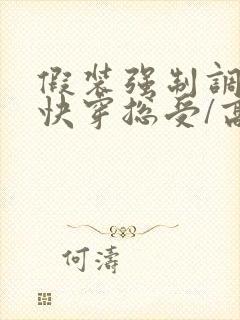 假装强制調
快穿总受/高
何濤